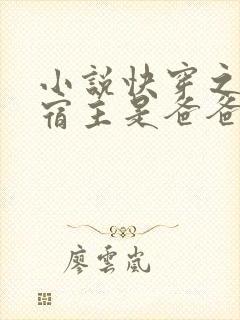 小説快穿之
宿主是爸爸
廖雲嵐